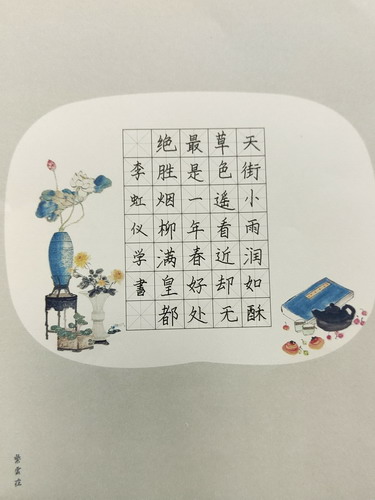 天街小雨润如酥
草色遥看近却无
最是一年春好处
绝胜烟柳满皇都
李虹仪学書
紫雲莊